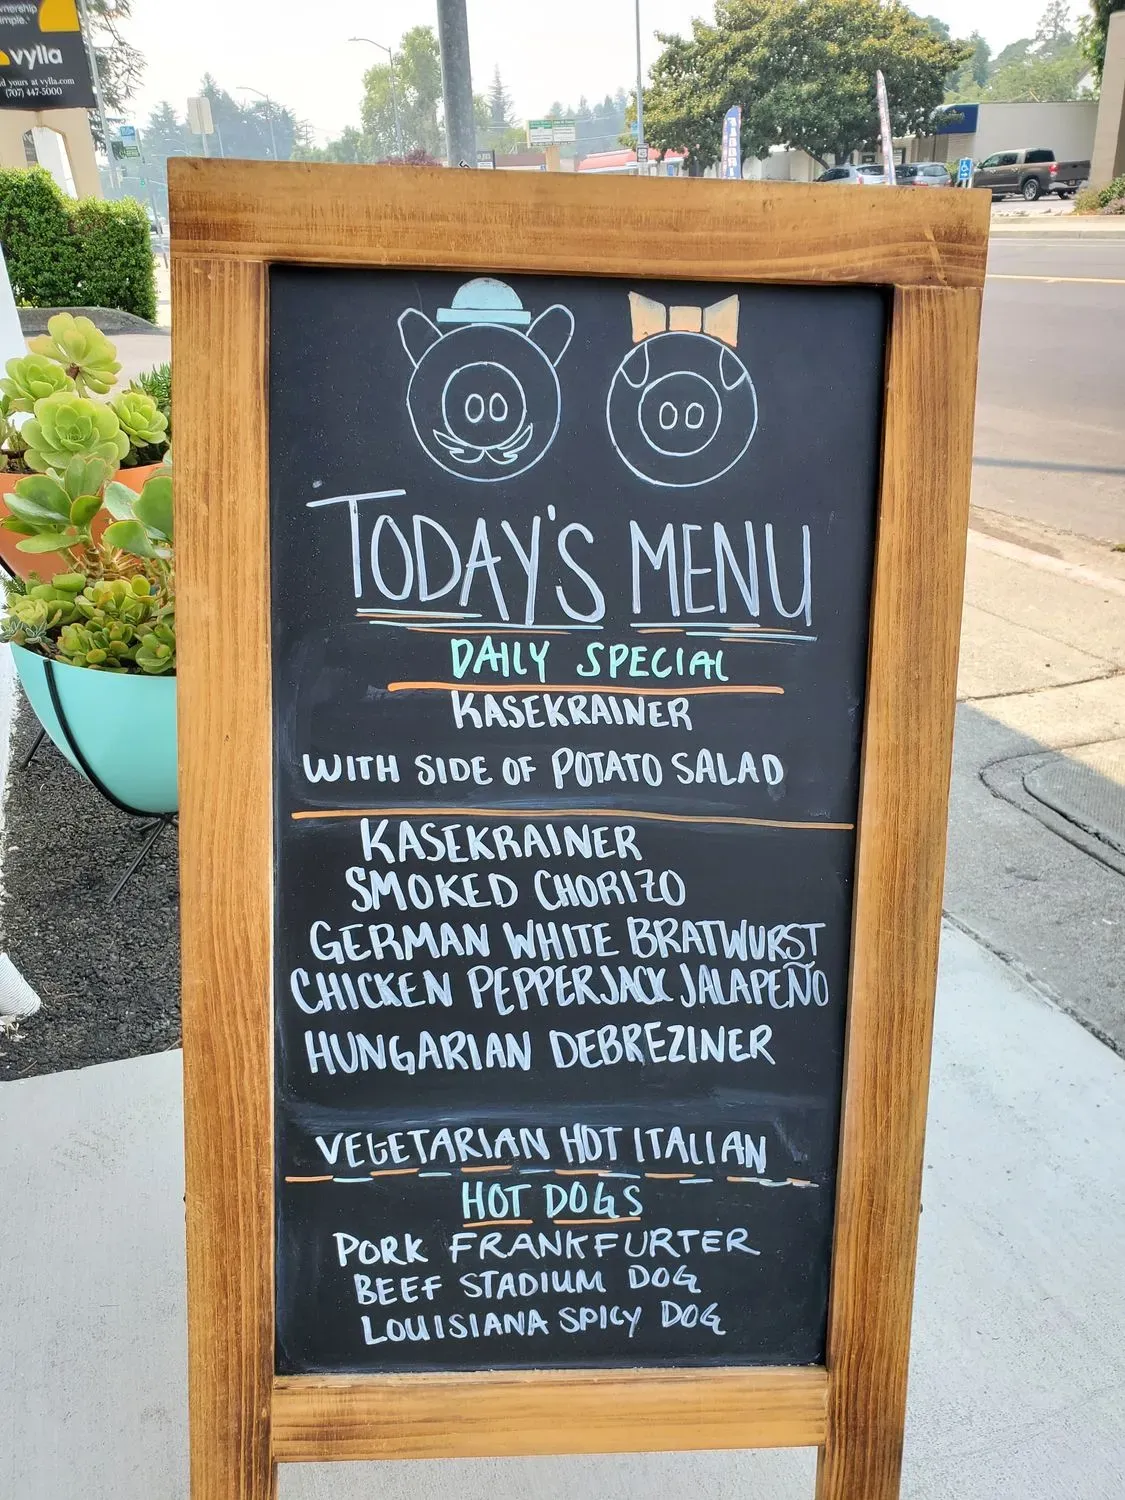 vylla
d yours at vylla.com
(707) 447-5000
TODAY'S MENU
DAILY SPECIAL
KASEKRAINER
WITH SIDE OF POTATO SALAD
KASEKRAINER
SMOKED CHORIZO
GERMAN WHITE BRATWURST
CHICKEN PEPPERJACK JALAPEÑO
HUNGARIAN DEBREZINER
VEGETARIAN HOT ITALIAN
HOT DOGS
PORK FRANKFURTER
BEEF STADIUM DOG
LOUISIANA SPICY DOG